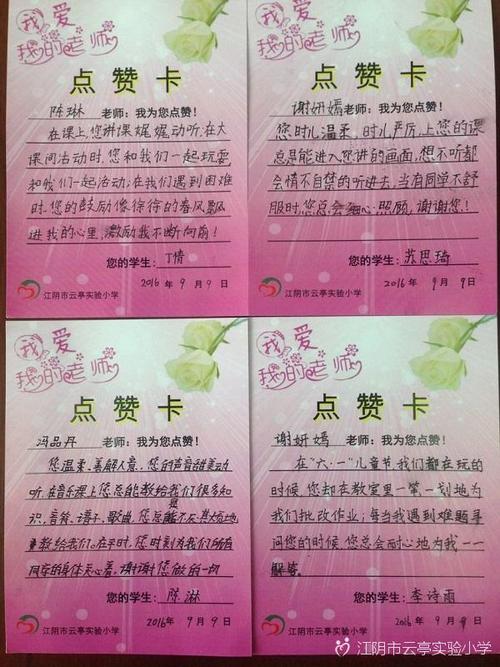 我爱
我的老师
点赞卡
陈琳 老师：我为您点赞！
在课上，您讲课娓娓动听，在大
课间活动时，您和我们一起玩耍
和我们一起活动；在我们遇到困难
时，您的鼓励像徐徐的春风飘
进我的心里，激励我不断向前！
您的学生：丁情
2016年9月9日
江阴市云亭实验小学
我爱
我的老师
点赞卡
谢妍嫣 老师：我为您点赞！
您时儿温柔，时儿严厉，上您的课
总是能进入您讲的画面，想不听都
会情不自禁的听进去，当有同学不舒
服时，您总会细心照顾，谢谢您！
您的学生：苏思琦
2016年9月9日
江阴市云亭实验小学
我爱
我的老师
点赞卡
冯品丹 老师：我为您点赞！
您温柔、善解人意，您的声音甜美动
听，在音乐课上，您总能教给我们很多知
识，音符、谱子、歌曲，您总是不厌其烦地
教给我们。在平时，您时刻为我们所有
同学的身体关心着。谢谢您做的一切
您的学生：陈淋
2016年9月9日
江阴市云亭实验小学
我爱
我的老师
点赞卡
谢妍嫣 老师：我为您点赞！
在“六·一”儿童节，我们都在玩的
时候，您却在教室里一笔一划地为
我们批改作业；每当我遇到难题事
问您的时候，您总会耐心地为我一一
解答。
您的学生：李诗雨
2016年9月9日
江阴市云亭实验小学